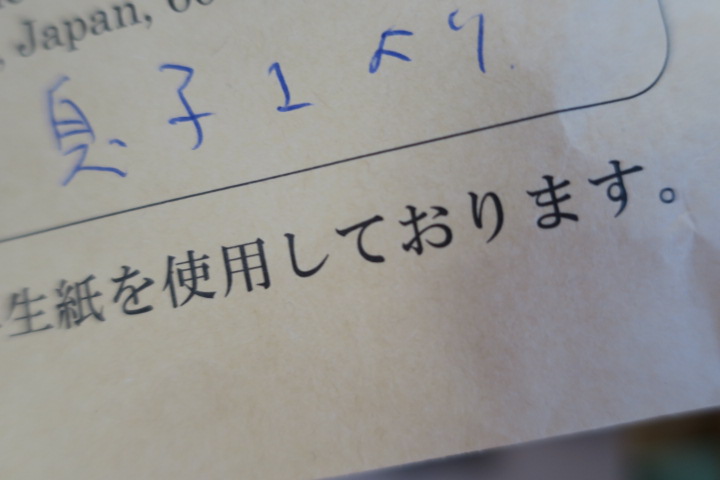 , Japan,
息子1より
生紙を使用しております。